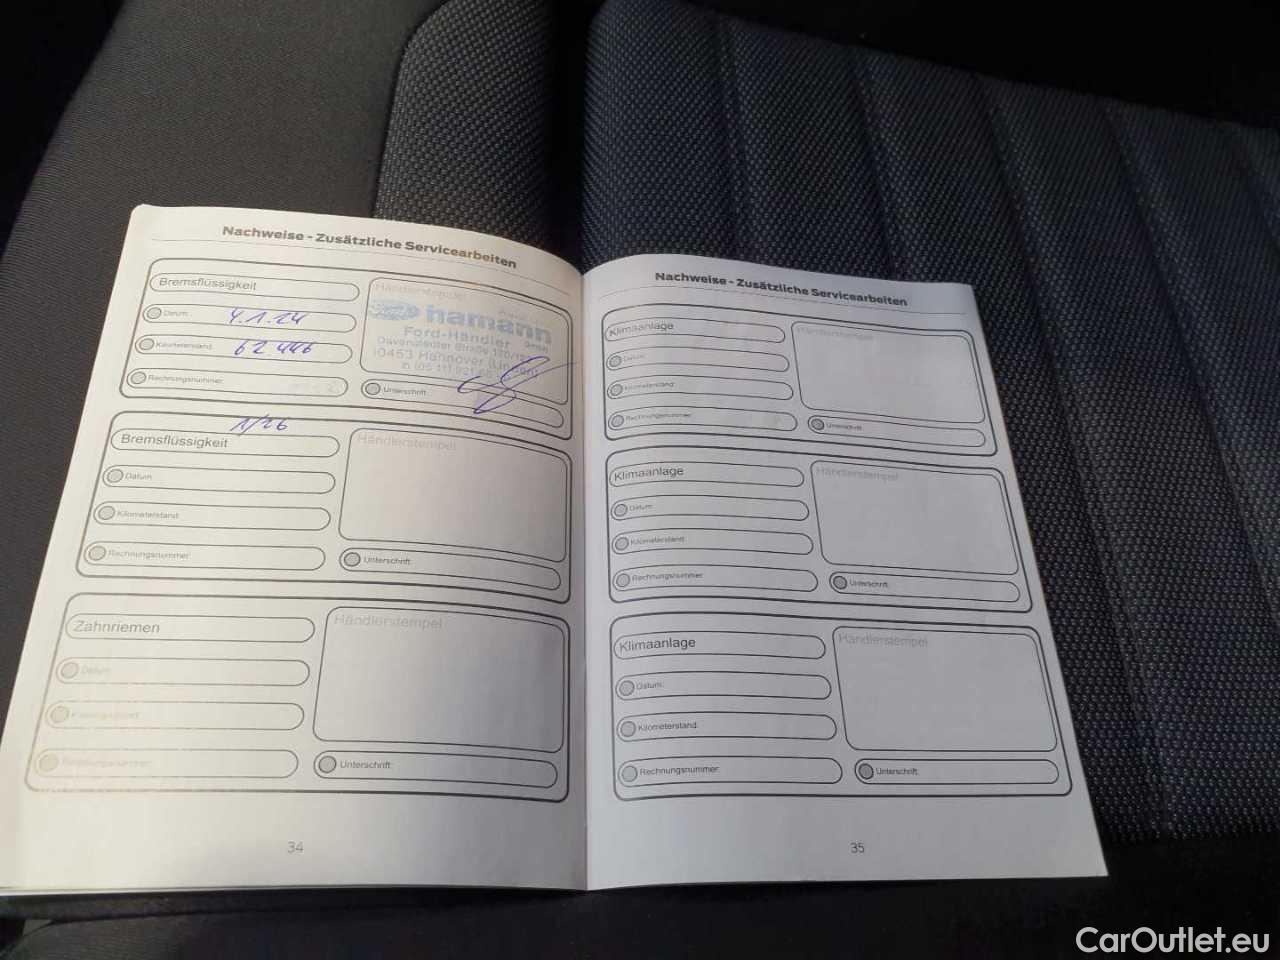 Nachweise - Zusätzliche Servicearbeiten
Bremsflüssigkeit
Händlerstempel
Datum: 4.1.24
Ford hamann
GmbH
Ford-Händler
Kilometerstand: 62 446
Davenstedter Straße
30453 Hannover (Linden)
Rechnungsnummer:
Unterschrift:
1/26
Bremsflüssigkeit
Händlerstempel
Datum:
Kilometerstand:
Rechnungsnummer:
Unterschrift:
Zahnriemen
Händlerstempel
Datum:
Kilometerstand:
Rechnungsnummer:
Unterschrift:
34
Nachweise - Zusätzliche Servicearbeiten
Klimaanlage
Händlerstempel
Datum:
Kilometerstand:
Rechnungsnummer:
Unterschrift:
Klimaanlage
Händlerstempel
Datum:
Kilometerstand:
Rechnungsnummer:
Unterschrift:
Klimaanlage
Händlerstempel
Datum:
Kilometerstand:
Rechnungsnummer:
Unterschrift:
35
CarOutlet.eu